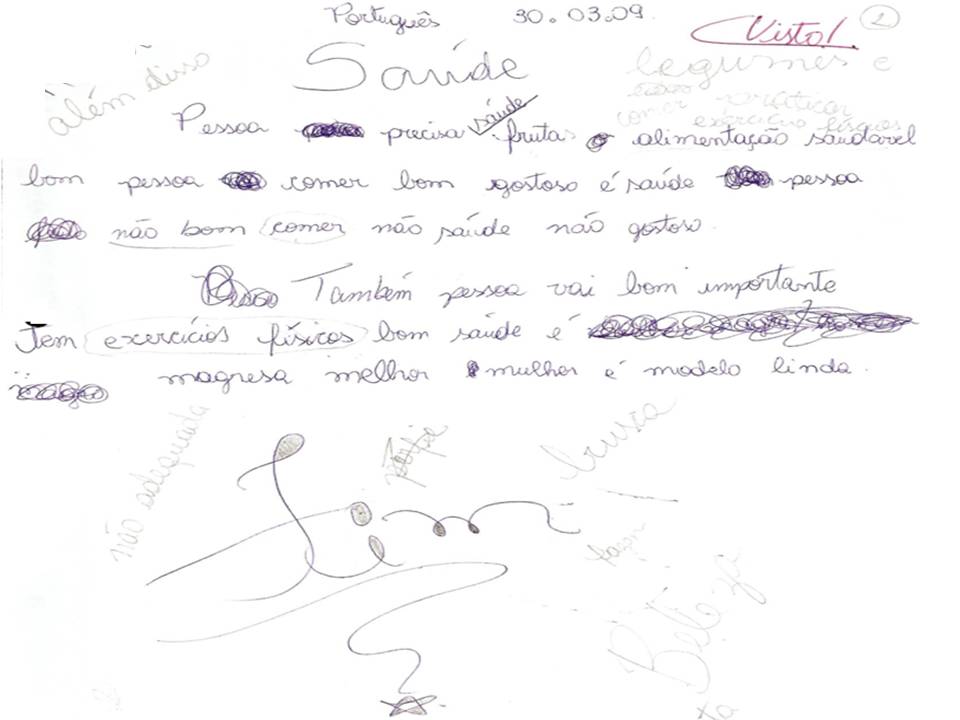 Português 30.03.09. Visto! 2
Saúde
além disso
legumes e
comer praticar
exercício físicos
saúde
Pessoa precisa frutas alimentação saudavel
bom pessoa comer bom gostoso é saúde pessoa
não bom comer não saúde não gostoso.
Também pessoa vai bom importante
Tem exercícios físicos bom saúde é
magresa melhor mulher é modelo linda.
não adequada
busca
Fim
Beleza